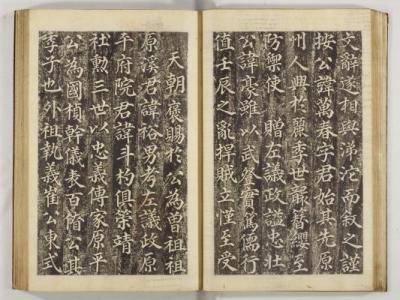 文辭遂相與涕沱而叙之謹
按公諱萬春字君始其先原
州人興於麗季世嚴簪纓至
防禦使 贈左議政諡忠壯
公諱豪雖以武發實篤儒行
值壬辰之亂捍賊立慬至受
天朝褒賜於公為曾祖祖
原溪君諱裕男考左議政原
平府院君諱斗杓俱策靖
社勲三世以忠義傳家原平
公為國楨幹儀表百僚公其
季子也外祖執義崔公東式